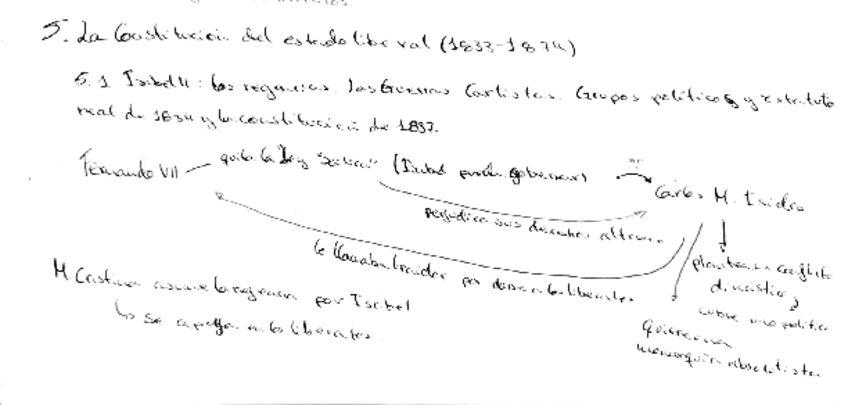 5. La Constitución del estado liberal (1833-1874)
5.1 Isabel II: Las regencias. Las Guerras Carlistas. Grupos políticos y estatuto
real de 1834 y la constitución de 1837.
Fernando VII — quita la ley Sálica (Isabel puede gobernar)
Carlos M. Isidro
perjudica sus derechos al trono
le llamaban traidor por a los liberales
plantea un conflicto
dinástico,
cubre uno político
Quiere una
monarquía absolutista
M Cristina asume la regencia por Isabel
↳ se apoya a los liberales